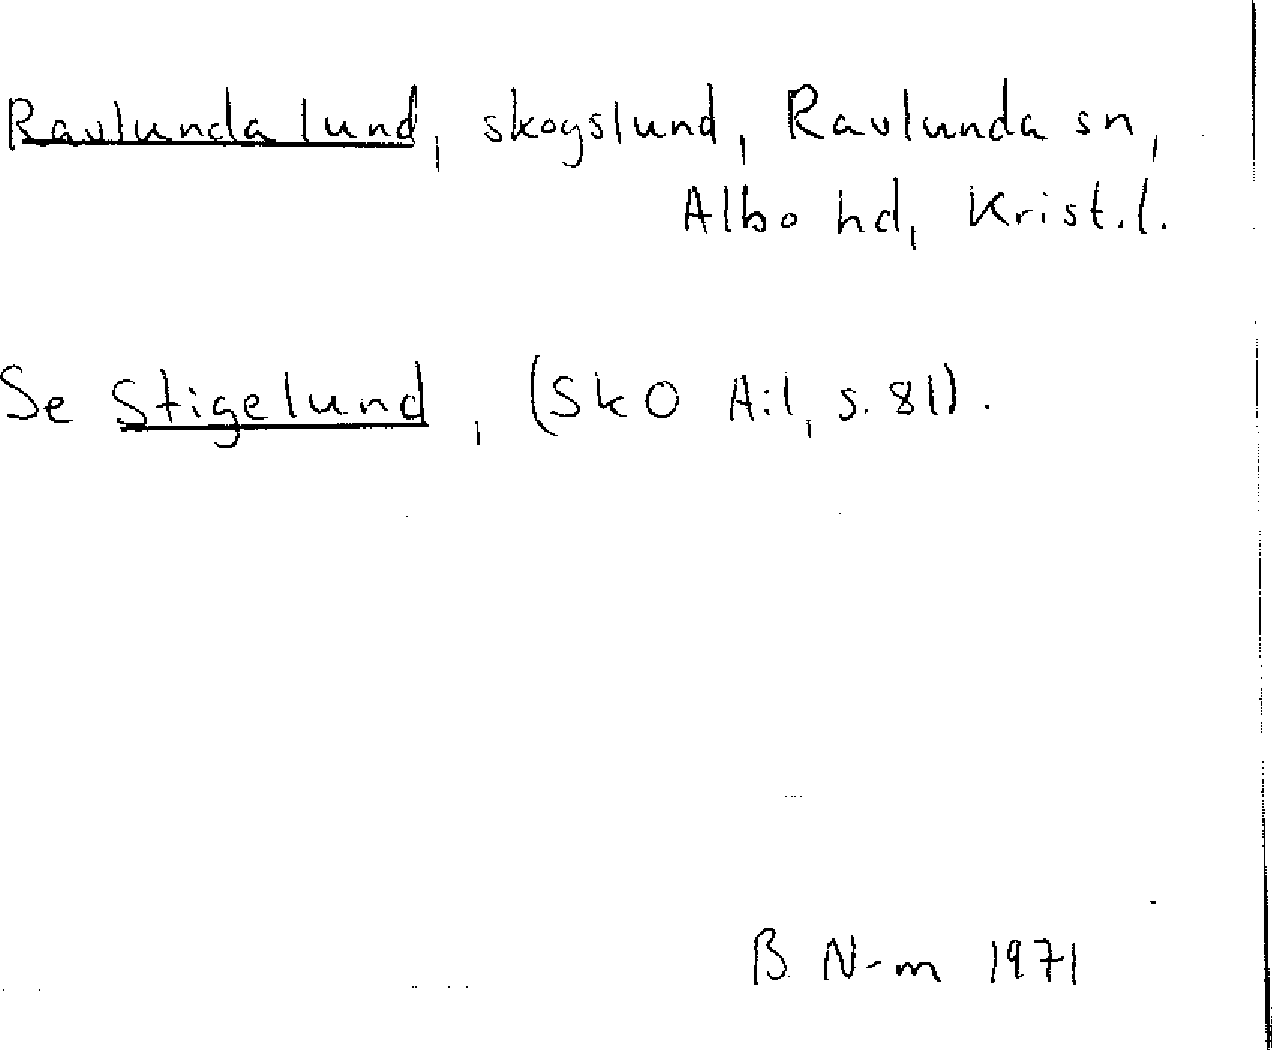 Ravlunda lund, skogslund, Ravlunda sn,
Albo hd, Krist.l.
Se Stigelund, (SkO A:1, s. 81).
B N-m 1971